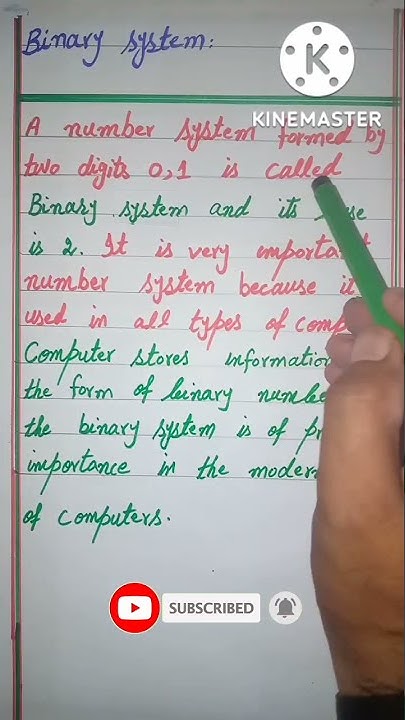 Binary system:
K
KINEMASTER
A number system formed by
two digits 0,1 is called
Binary system and its
is 2. It is very important
number system because it
used in all types of comp
Computer stores information
the form of binary numbe
the binary system is of pr
importance in the modern
of computers.
SUBSCRIBED